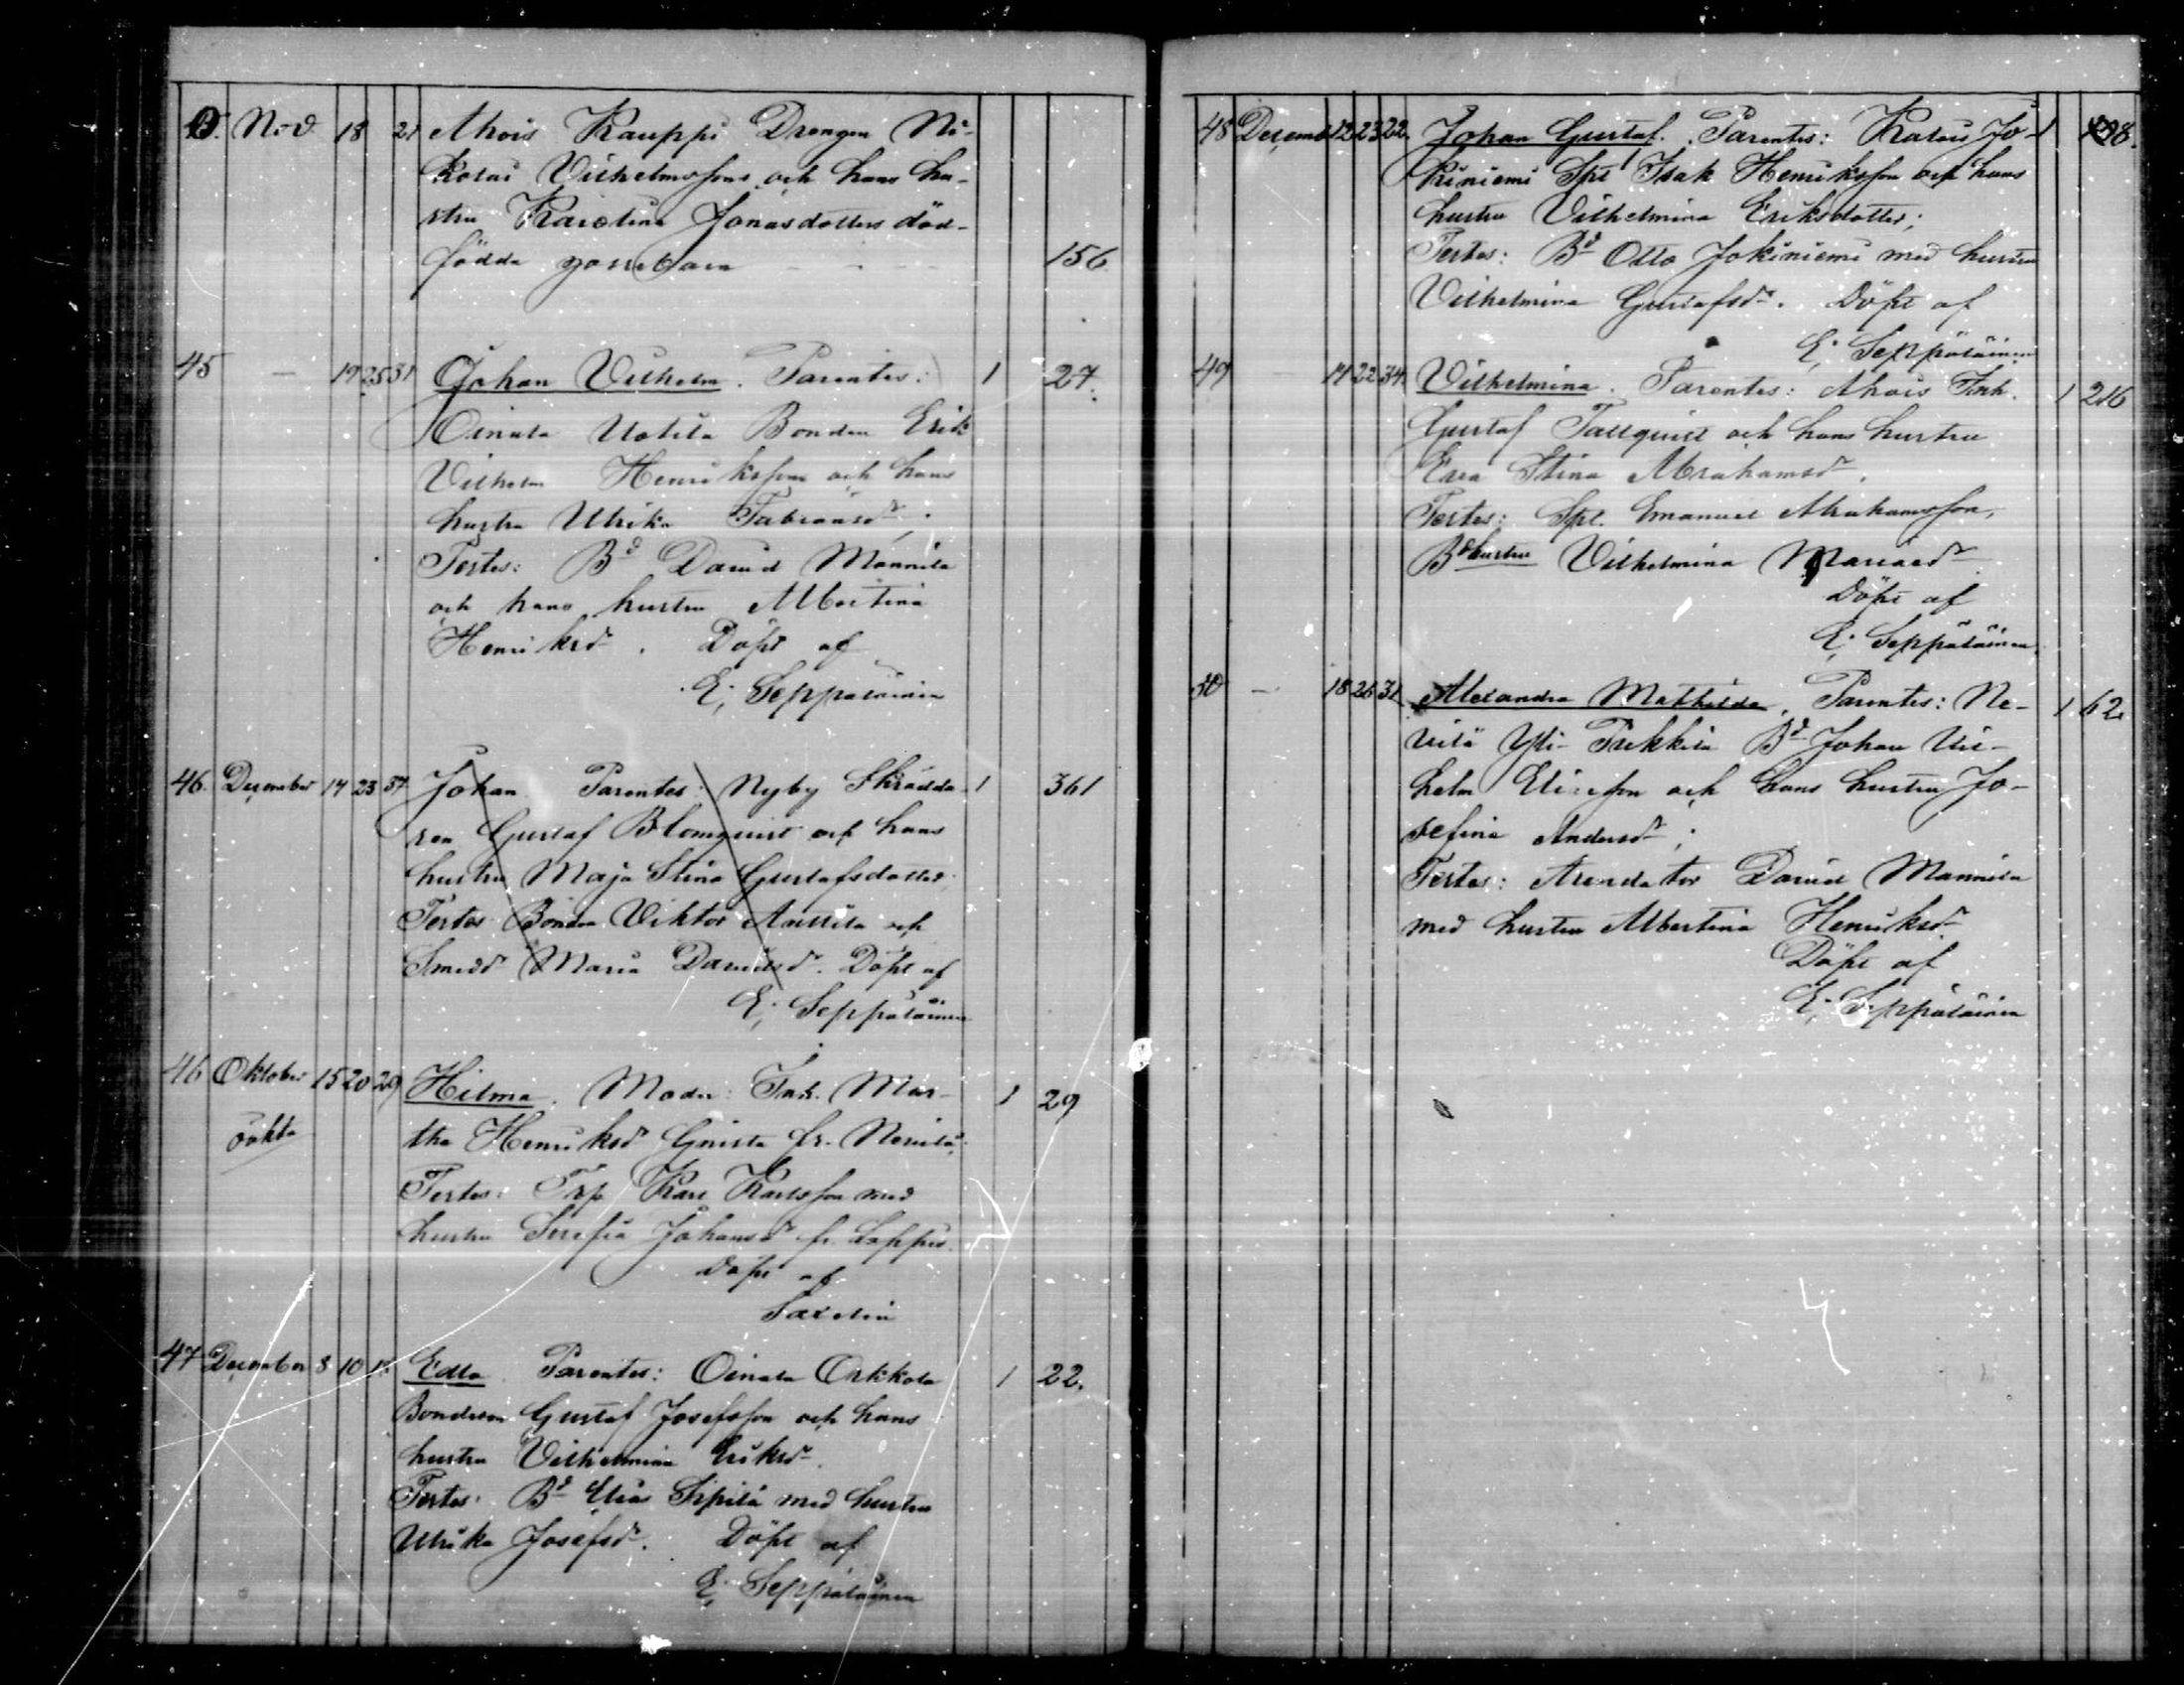 D. Nov. 18 21 Ahois Kauppi Drengen Ni-
kolai Vilhelmssons och hans hu-
stru Karolina Jonasdotters död-
födda gossebarn - - - 156
45 — 19 25 31 Johan Vilhelm. Parentes: 1 27.
Oinala Uotila Bonden Erik
Vilhelm Henriksson och hans
hustru Ulrika Fabiansdr.
Testes: Bd David Mannila
och hans hustru Albertina
Henriksdr. Döpt af
E. Seppäläinen
46. December 14 23 37 Johan Parentes: Nyby Skrädda- 1 361
ren Gustaf Blomquist och hans
hustru Maja Stina Gustafsdotter.
Testes Bonden Viktor Anttila och
Smedd Maria Davidsdr. Döpt af
E. Seppäläinen
46 Oktober 15 20 29 Hilma. Moder: Ink. Mar- 1 29
oäkta tha Henriksdr Gnista fr. Nevilä.
Testes: Trp Karl Karlsson med
hustru Serafia Johansdr fr.
Döpt af
Saxelin
47 December 8 10 Edla Parentes: Oinala Orkkola 1 22.
Bondeson Gustaf Josefsson och hans
hustru Vilhelmina Eriksdr.
Testes: Bd Elias Sipilä med hustru
Ulrika Josefsdr. Döpt af
E. Seppäläinen
48 December 12 23 22. Johan Gustaf. Parentes: Kalais Jo- 1 298.
kiniemi Spl Isak Henriksson och hans
hustru Vilhelmina Eriksdotter;
Testes: Bd Otto Jokiniemi med hustru
Vilhelmina Gustafsdr. Döpt af
E. Seppäläinen
49 14 22 34. Vilhelmina. Parentes: Ahois Inh. 1 216
Gustaf Tallquist och hans hustru
Eva Stina Abrahamsdr.
Testes: Spl. Emanuel Abrahamsson,
Bdhustru Vilhelmina
Döpt af
E. Seppäläinen
50 — 18 26 31 Alexandra Mathilda. Parentes: Ne- 1 62
vilä Yli-Prekkilä Bd Johan Vil-
helm Eliesson och hans hustru Jo-
sefina Andersdr;
Testes: Arendator David Mannila
med hustru Albertina Henriksdr
Döpt af
E. Seppäläinen